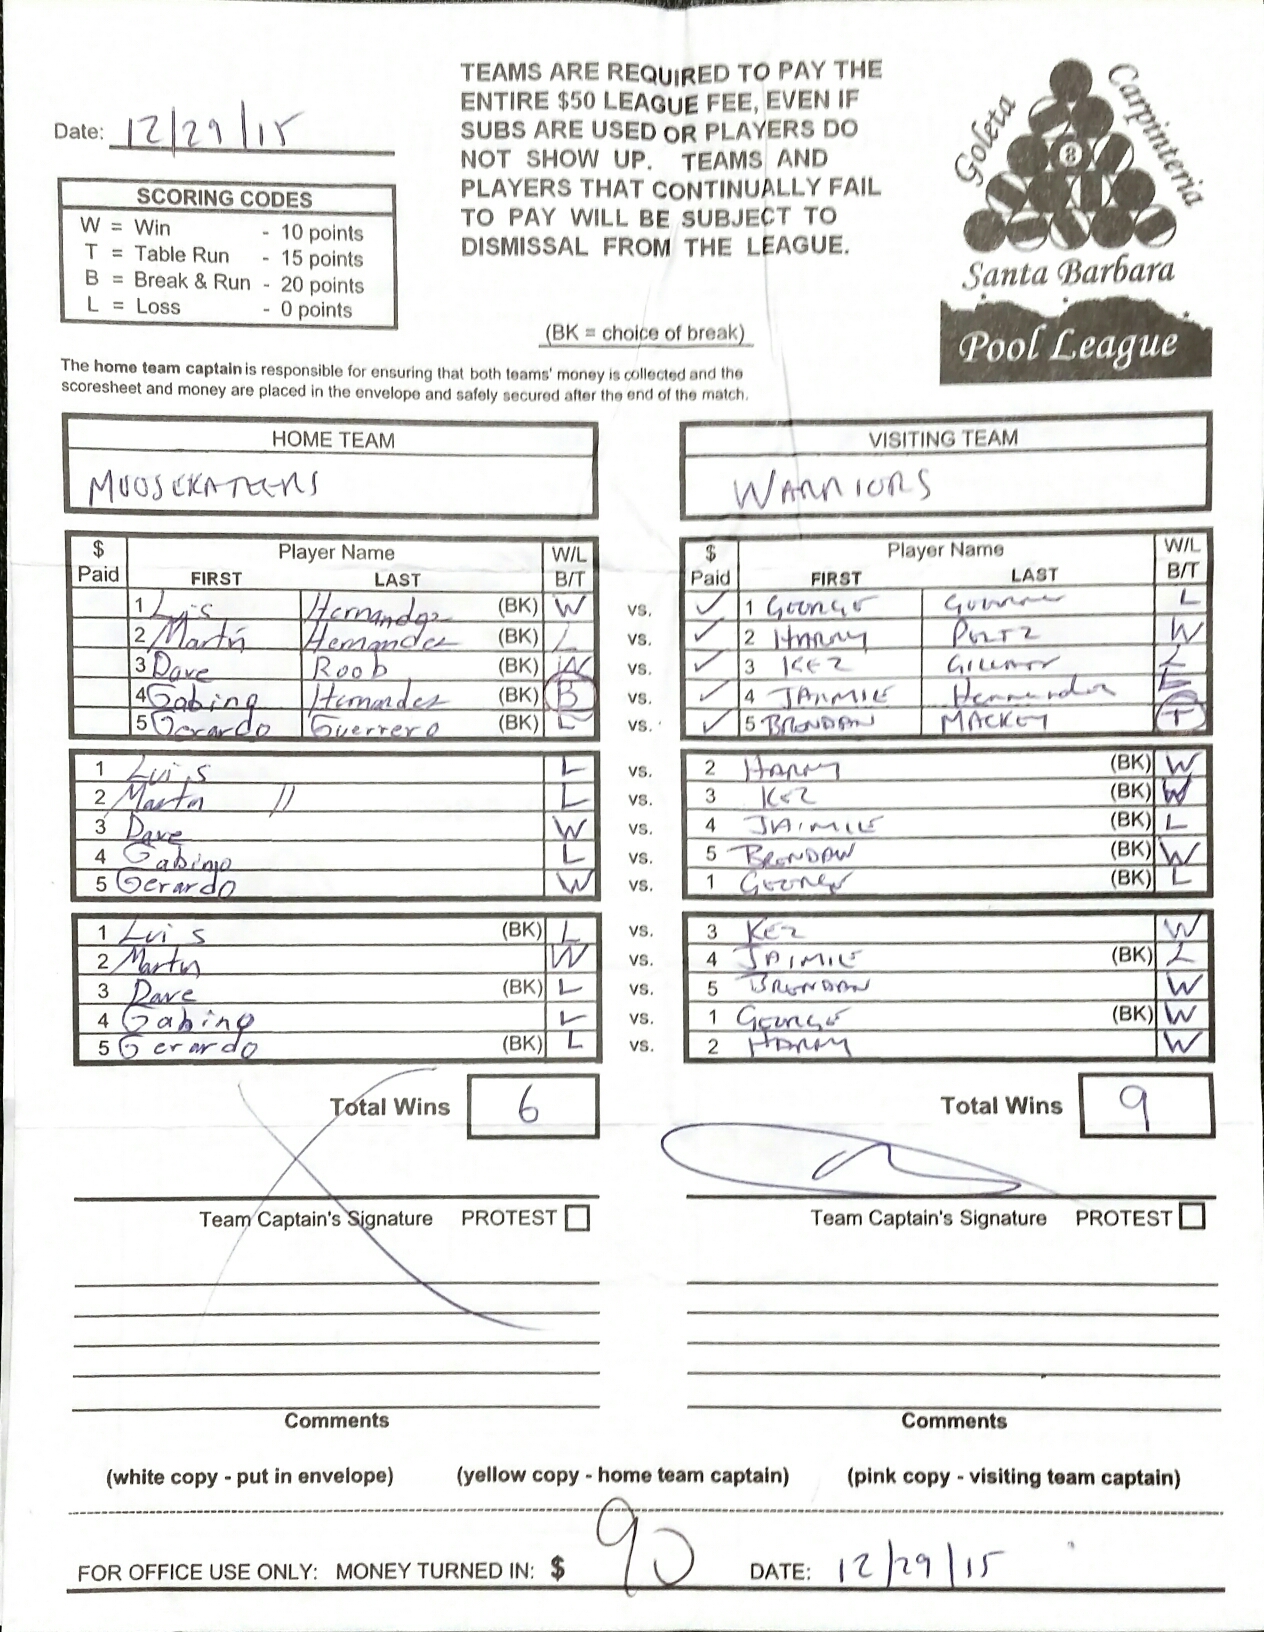 Date: 12/29/15
TEAMS ARE REQUIRED TO PAY THE
ENTIRE $50 LEAGUE FEE, EVEN IF
SUBS ARE USED OR PLAYERS DO
NOT SHOW UP. TEAMS AND
PLAYERS THAT CONTINUALLY FAIL
TO PAY WILL BE SUBJECT TO
DISMISSAL FROM THE LEAGUE.
Goleta
Carpinteria
8
Santa Barbara
Pool League
SCORING CODES
W = Win - 10 points
T = Table Run - 15 points
B = Break & Run - 20 points
L = Loss - 0 points
(BK = choice of break)
The home team captain is responsible for ensuring that both teams' money is collected and the
scoresheet and money are placed in the envelope and safely secured after the end of the match.
HOME TEAM VISITING TEAM
MOOSEKATEERS WARRIORS
$ Paid Player Name FIRST LAST W/L B/T $ Paid Player Name FIRST LAST W/L B/T
1 Luis Hernandez (BK) W vs. ✓ 1 GEORGE L
2 Martin Hernandez (BK) L vs. ✓ 2 HARRY W
3 Dave Roob (BK) W vs. ✓ 3 KEZ L
4 Gabino Hernandez (BK) B vs. ✓ 4 JAIMIE L
5 Gerardo Guerrero (BK) L vs. ✓ 5 BRENDAN MACKEY T
1 Luis L vs. 2 HARRY (BK) W
2 Martin // L vs. 3 KEZ (BK) W
3 Dave W vs. 4 JAIMIE (BK) L
4 Gabino L vs. 5 BRENDAN (BK) W
5 Gerardo W vs. 1 GEORGE (BK) L
1 Luis (BK) L vs. 3 KEZ W
2 Martin W vs. 4 JAIMIE (BK) L
3 Dave (BK) L vs. 5 BRENDAN W
4 Gabino L vs. 1 GEORGE (BK) W
5 Gerardo (BK) L vs. 2 HARRY W
Total Wins 6 Total Wins 9
Team Captain's Signature PROTEST Team Captain's Signature PROTEST
Comments Comments
(white copy - put in envelope) (yellow copy - home team captain) (pink copy - visiting team captain)
FOR OFFICE USE ONLY: MONEY TURNED IN: $ 90 DATE: 12/29/15